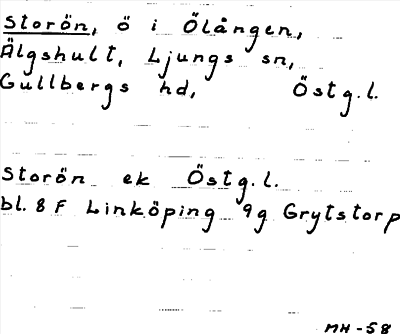 Storön, ö i Ölången,
Älgshult, Ljungs sn,
Gullbergs hd, Östg.l.
Storön ek Östg.l.
bl. 8 F Linköping 9g Grytstorp
MH-58